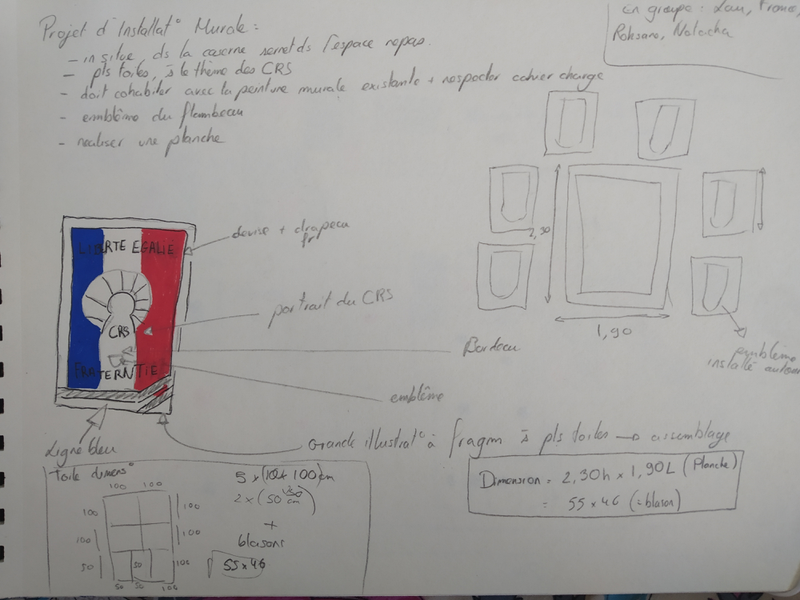 Projet d'Installat° Murale :
- in situe ds la caserne l'espace repas.
- pls toiles, à le thème des CRS
- doit cohabiter avec la peinture murale existante + respecter cahier charge
- emblème du flambeau
- realiser une planche
En groupe : Lou,
Roksane, Natacha
LIBERTE EGALIE
CRS
FRATERNTIE
devise + drapeau
fr
portrait du CRS
Bordeau
emblème
Ligne bleu
Grande illustrat° à fragm à pls toiles → assemblage
2,30
1,90
installé
Toile dimens°
100 100
100 100
100 100
50 50 100
50 50 100
5 x (100 x 100) cm
2 x (50 cm)
+
blasons
55 x 46
Dimension = 2,30h x 1,90L (Planche)
= 55 x 46 (= blason)